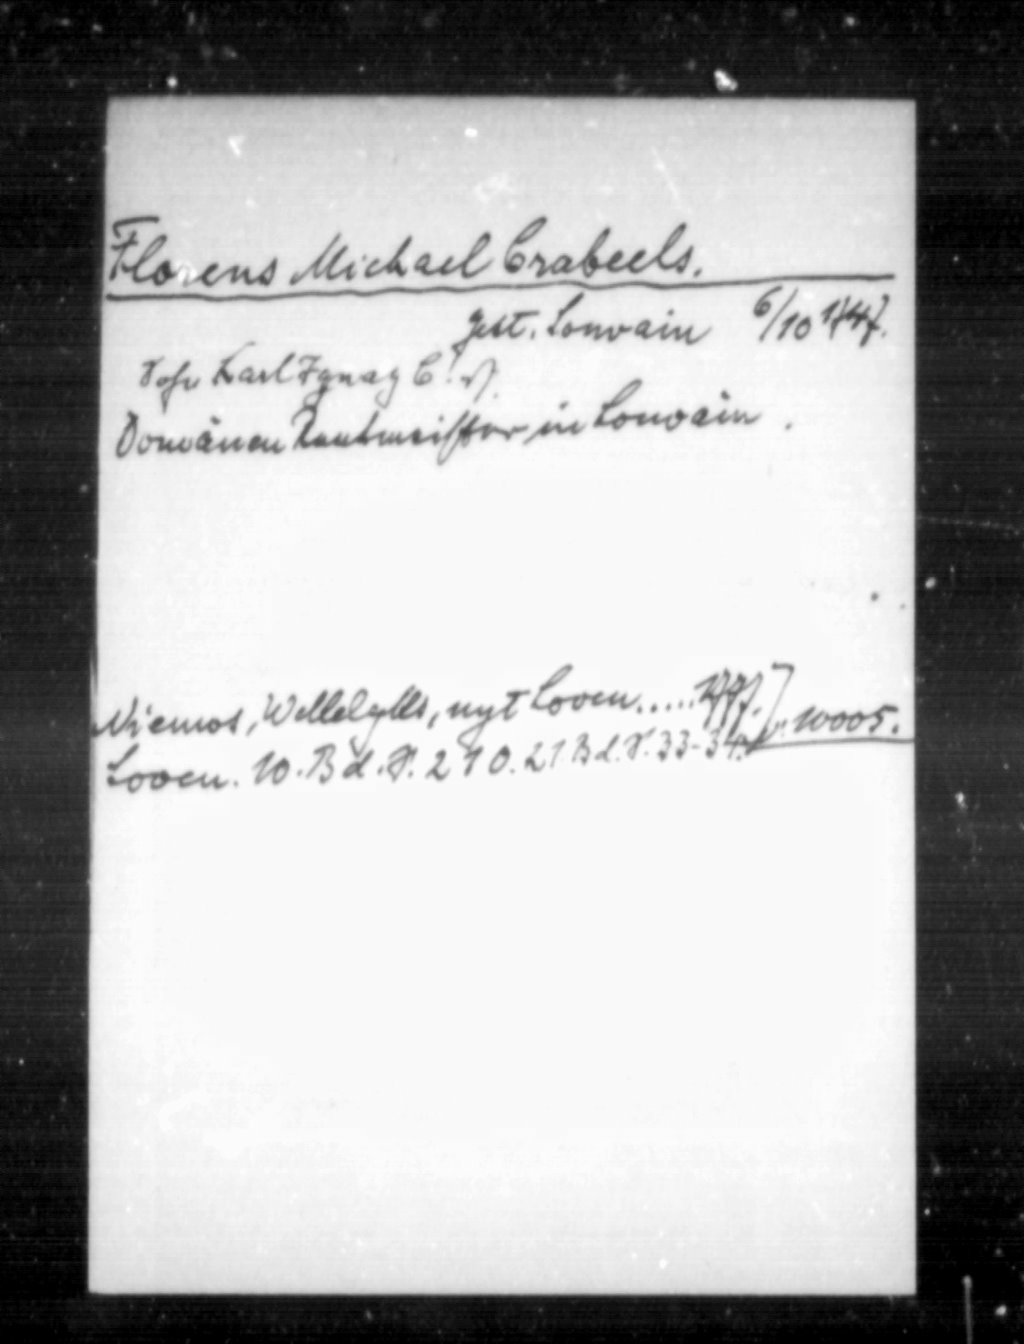 Florens Michael Crabeels.
gest. Louvain 6/10 1747.
Sohn Karl Ignaz C! v/.
Domänen Rentmeister in Louvain.
Niemos, Wellelylls, uyt Loven.....
Loven. 10. Bd. S. 210. 21 Bd. S. 33-34. v. 10005.